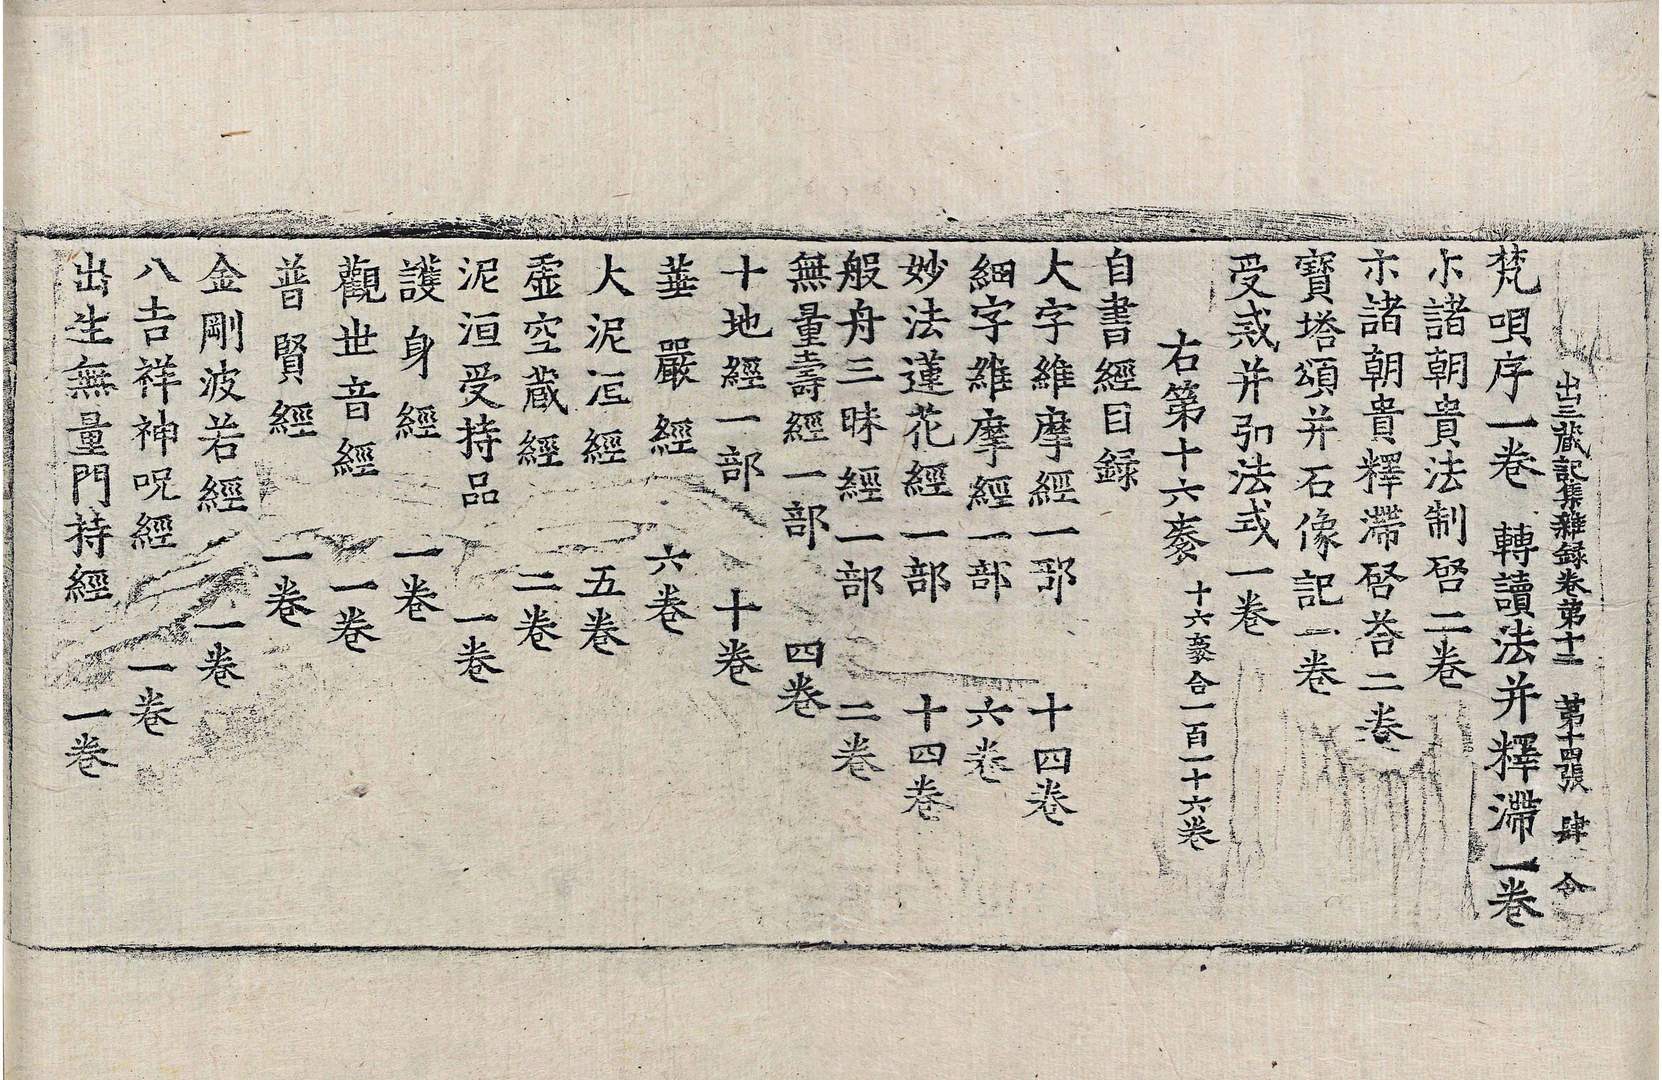 出三藏記集雜録卷第十二 第十四張 肆 令
梵唄序一卷 轉讀法并釋滯一卷
示諸朝貴法制啓二卷
示諸朝貴釋滯啓荅二卷
寶塔頌并石像記一卷
受戒并弘法戒一卷
右第十六袠 十六袠合一百一十六卷
自書經目録
大字維摩經一部 十四卷
細字維摩經一部 六卷
妙法蓮花經一部 十四卷
般舟三昧經一部 二卷
無量壽經一部 四卷
十地經一部 十卷
華嚴經 六卷
大泥洹經 五卷
虛空藏經 二卷
泥洹受持品 一卷
護身經 一卷
觀世音經 一卷
普賢經 一卷
金剛波若經 一卷
八吉祥神呪經 一卷
出生無量門持經 一卷